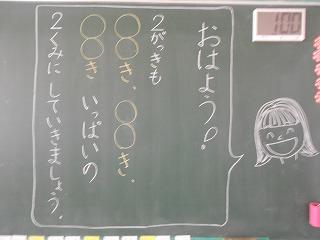 おはよう!
2がっきも
○○き、○○き、
○○き いっぱいの
2くみに していきましょう。
100